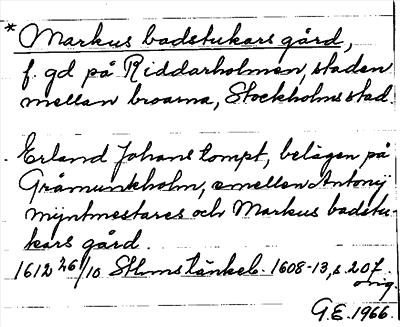 * Markus badstukars gård,
f. gd på Riddarholmen, staden
mellan broarna, Stockholms stad.
Erland Johans tompt, belägen på
Gråmunkholm, emellan Antonij
myntmestares och Markus badstu-
kars gård.
1612 26/10 Sthms tänkeb. 1608-13, s. 207.
orig.
G.E. 1966.